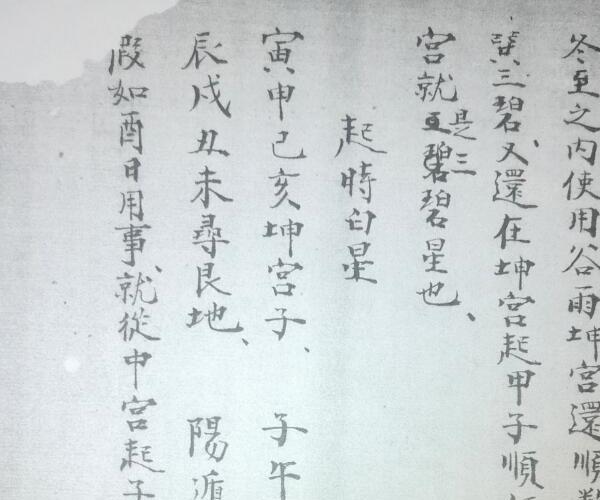 冬至之内使用谷雨坤宫還順
巽三碧、又還在坤宫起甲子順
宫就是三碧星也、
起時白星
寅申己亥坤宫子、子午
辰戌丑未尋艮地、陽遁
假如酉日用事、就從中宫起子